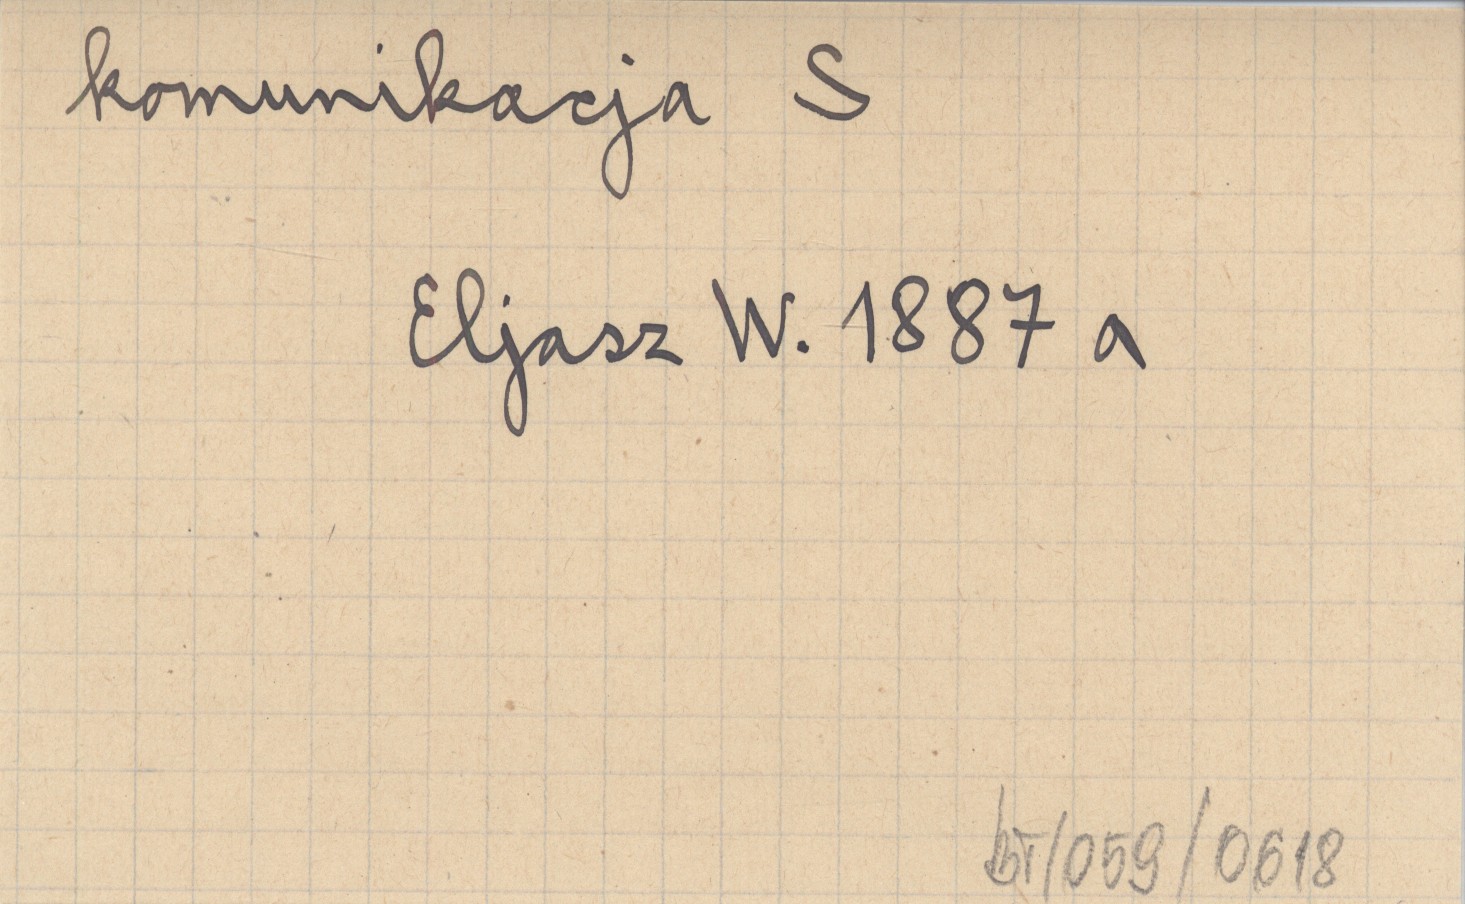 komunikacja S
Eljasz W. 1887 a
bt/059/0618